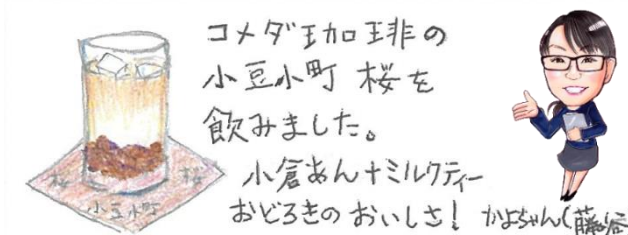 コメダ珈琲の
小豆小町 桜を
飲みました。
小倉あん+ミルクティー
おどろきのおいしさ! かよちゃん(藤谷
桜 桜
小豆小町